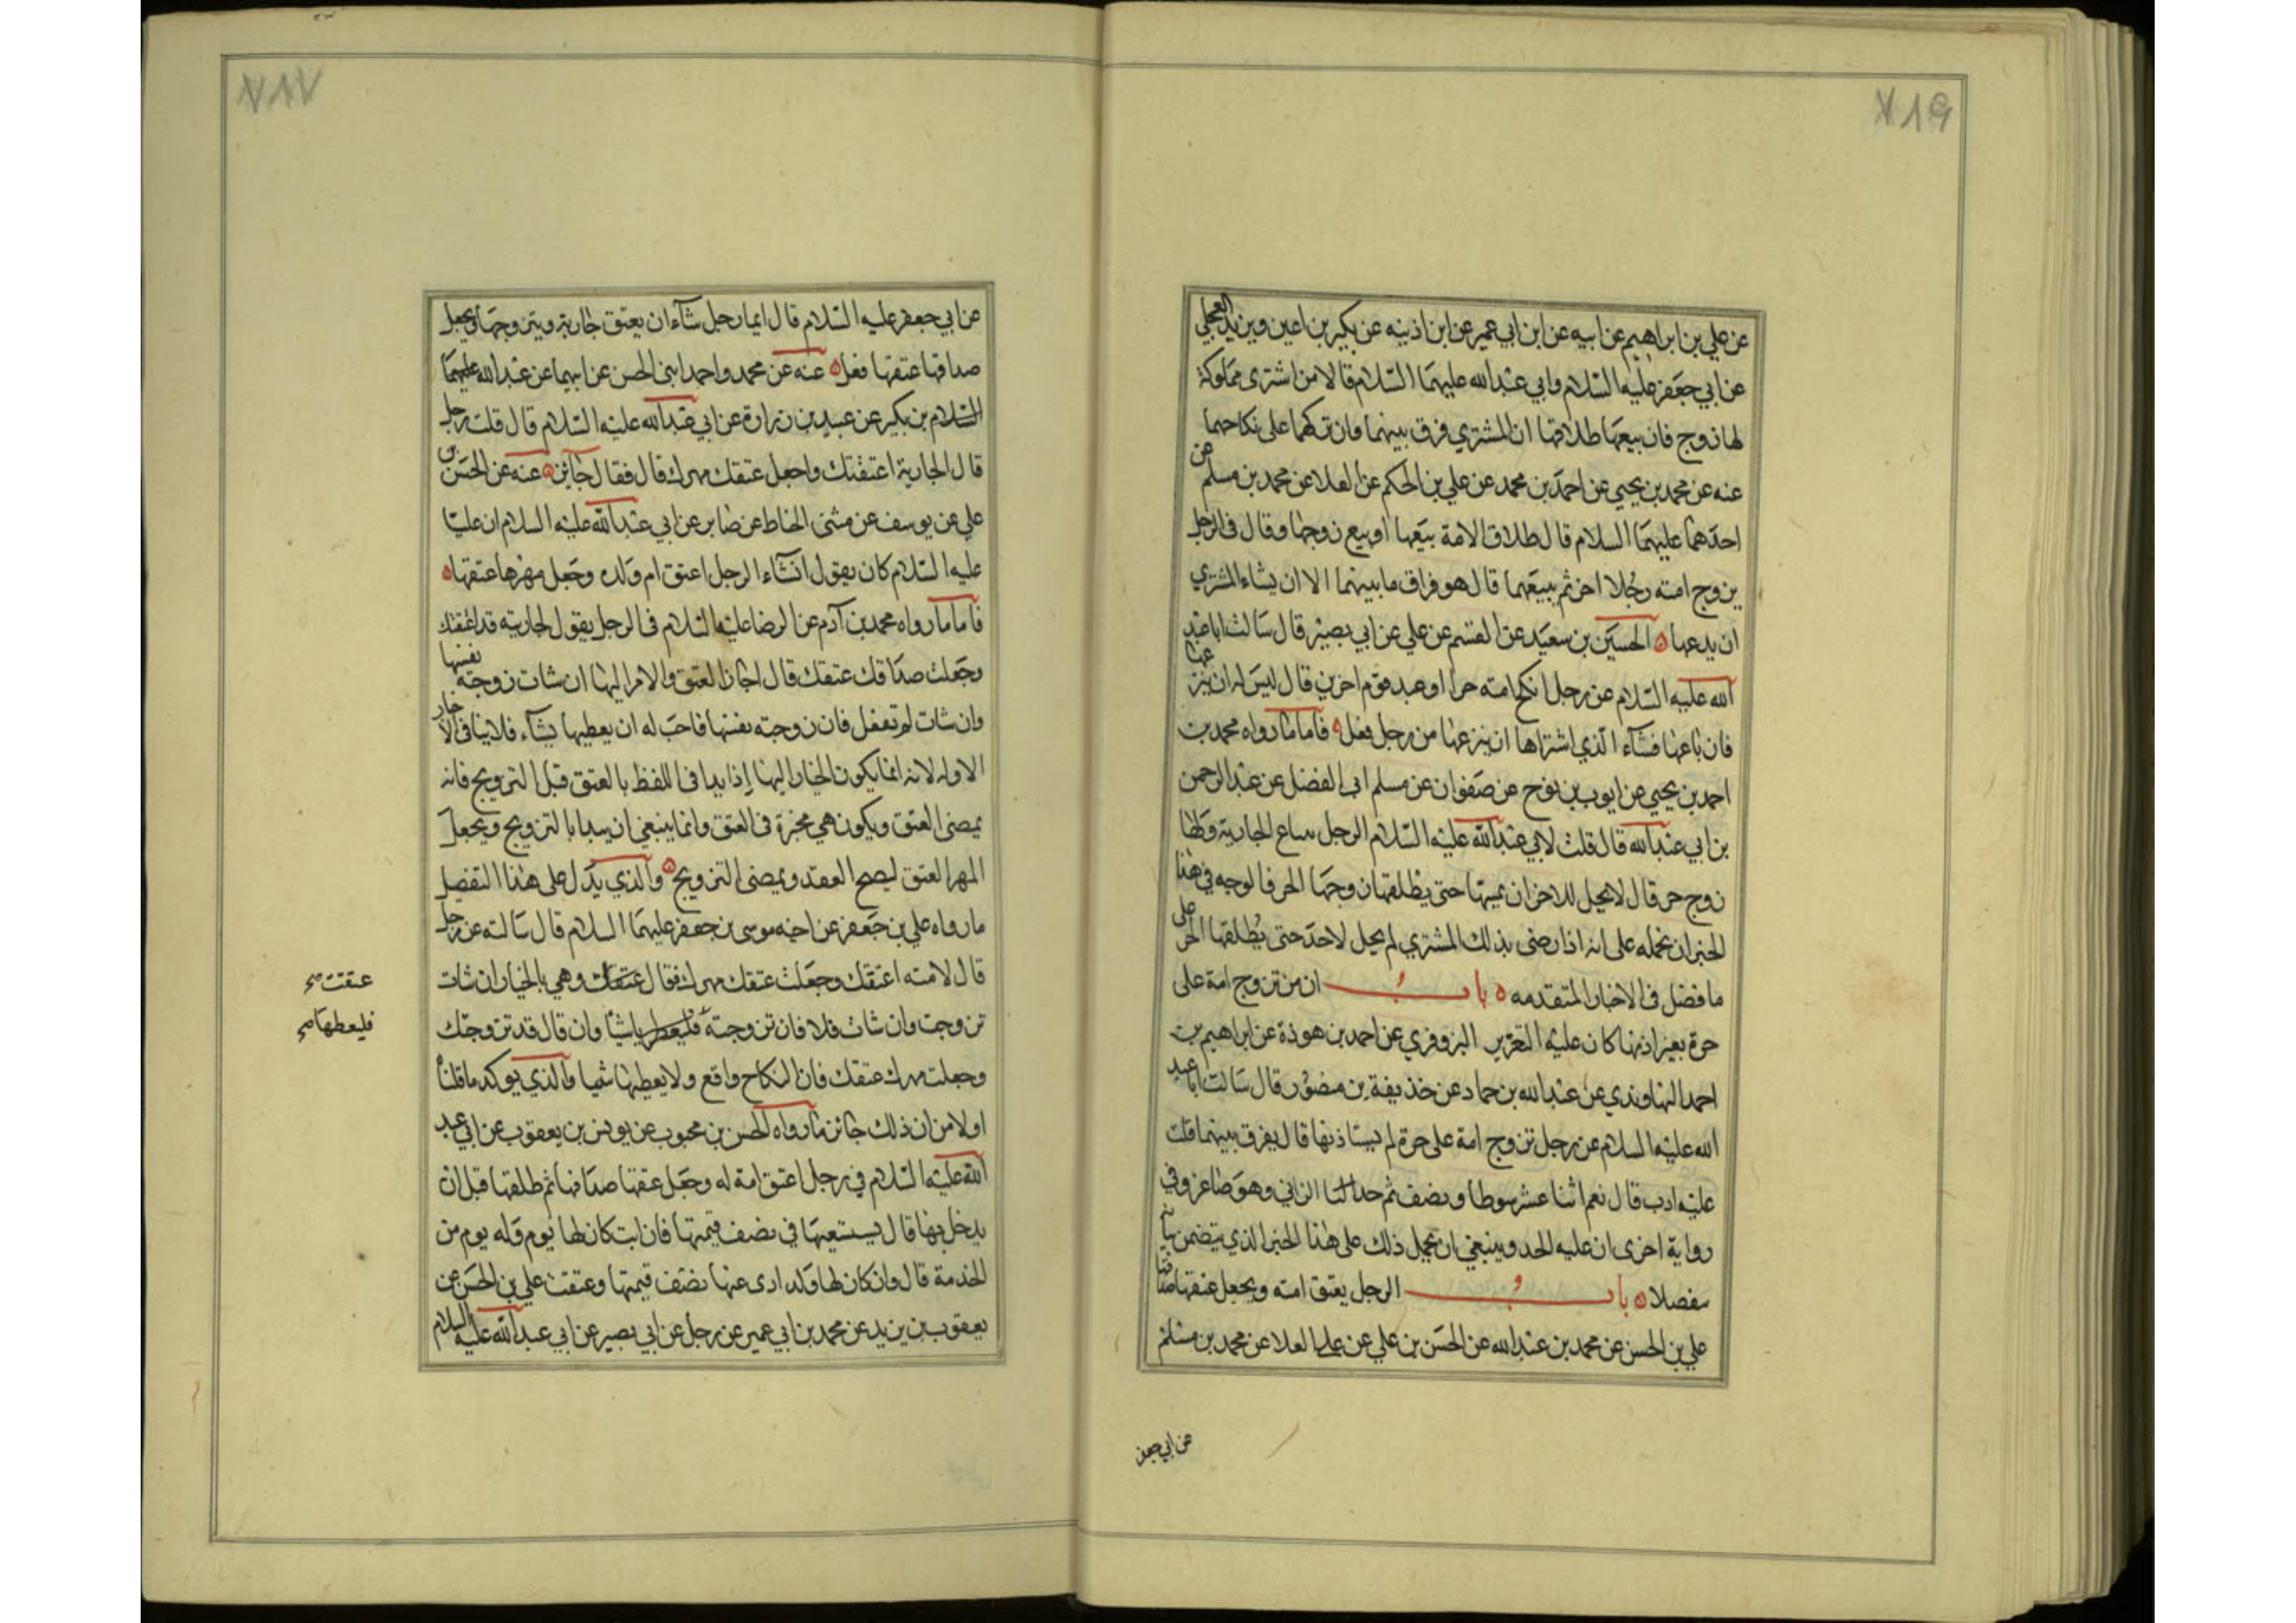 ٧١٩
عن علي بن ابراهيم عن ابيه عن ابن ابي عمير عن ابن اذينه عن بكير بن اعين وبريد العجلي
عن ابي جعفر عليه السلام وابي عبدالله عليهما السلام قالا من اشترى مملوكة
لها زوج فان بيعها طلاقها ان المشتري فرق بينهما وان تركهما على نكاحهما
عنه عن محمد بن يحيي عن احمد بن محمد عن علي بن الحكم عن العلا عن محمد بن مسلم عن
احدهما عليهما السلام قال طلاق الامة بيعها او بيع زوجها وقال في الرجل
يزوج امته رجلا اخر ثم يبيعهما قال هو فراق ما بينهما الا ان يشاء المشتري
ان يدعها الحسين بن سعيد عن القسم عن علي عن ابي بصير قال سالت ابا عبد
الله عليه السلام عن رجل انكح امته حرا او عبد قوم اخرين قال ليس له ان ينزعها
فان باعها فشاء الذي اشتراها ان ينزعها من رجل فعل فاما ما رواه محمد بن
احمد بن يحيي عن ايوب بن نوح عن صفوان عن مسلم ابي الفضل عن عبد الرحمن
بن ابي عبدالله قال قلت لابي عبدالله عليه السلام الرجل يبتاع الجارية ولها
زوج حر قال لا يحل للاخر ان يمسها حتى يطلقها زوجها الحر فالوجه في هذا
الخبر ان نحمله على انه اذا رضى بذلك المشتري لم يحل لاحد حتى يطلقها الحر على
ما فضل في الاخبار المتقدمه باب ان من تزوج امة على
حرة بغير اذنها كان عليه التعزير البزوفري عن احمد بن هوذة عن ابراهيم بن
احمد النهاوندي عن عبدالله بن حماد عن حذيفة بن منصور قال سالت ابا عبد
الله عليه السلام عن رجل تزوج امة على حرة لم يستاذنها قال يفرق بينهما قلت
عليه ادب قال نعم اثنا عشر سوطا ونصف ثم حد الزاني وهو صاغر وفي
رواية اخرى ان عليه الحد وينبغي ان يحمل ذلك على هذا الخبر الذي يتضمن بيانه
مفصلا باب الرجل يعتق امته ويجعل عتقها صداقها
علي بن الحسن عن محمد بن عبدالله عن الحسن بن علي عن العلا عن محمد بن مسلم
عن ابي جعفر
٧١٧
عن ابي جعفر عليه السلام قال ايما رجل شاء ان يعتق جاريته ويتزوجها ويجعل
صداقها عتقها فعل عنه عن محمد واحمد ابنى الحسن عن ابيهما عن عبدالله عليهما
السلام بن بكير عن عبيد بن زرارة عن ابي عبدالله عليه السلام قال قلت رجل
قال لجاريته اعتقتك واجعل عتقك مهرك قال فقال جائز عنه عن الحسن بن
علي عن يوسف عن مثنى الحناط عن صابر عن ابي عبدالله عليه السلام ان عليا
عليه السلام كان يقول ان شاء الرجل اعتق ام ولده وجعل مهرها عتقها
فاما ما رواه محمد بن آدم عن الرضا عليه السلام في الرجل يقول لجاريته قد اعتقتك
وجعلت صداقك عتقك قال جاز العتق والامر اليها ان شات زوجته نفسها
وان شات لم تفعل فان زوجته نفسها فاحب له ان يعطيها شياء فلا ينافى الاخبار
الاوله لانه انما يكون الخيار اليها إذا بدا في اللفظ بالعتق قبل التزويج فانه
يمضى العتق ويكون هي مخيرة في العتق وانما ينبغي ان يبدا بالتزويج ويجعل
المهر العتق ليصح العقد ويمضى التزويج والذي يدل على هذا التفصيل
ما رواه علي بن جعفر عن اخيه موسى بن جعفر عليهما السلام قال سالته عن رجل
قال لامته اعتقتك وجعلت عتقك مهرك فقال عتقت وهي بالخيار ان شات
تزوجت وان شات فلا فان تزوجته فليعطها شيأ وان قال قد تزوجتك
وجعلت مهرك عتقك فان النكاح واقع ولا يعطيها شيا والذي يوكد ما قلناه
اولا من ان ذلك جائز ما رواه الحسن بن محبوب عن يونس بن يعقوب عن ابي عبد
الله عليه السلام في رجل اعتق امة له وجعل عتقها صداقها ثم طلقها قبل ان
يدخل بها قال يستسعيها في نصف قيمتها فان ابت كان لها يوم وله يوم من
الخدمة قال وان كان لها ولد ادى عنها نصف قيمتها وعتقت علي بن الحسن عن
يعقوب بن يزيد عن محمد بن ابي عمير عن رجل عن ابي بصير عن ابي عبدالله عليه السلام
عتقت صح
فليعطها صح